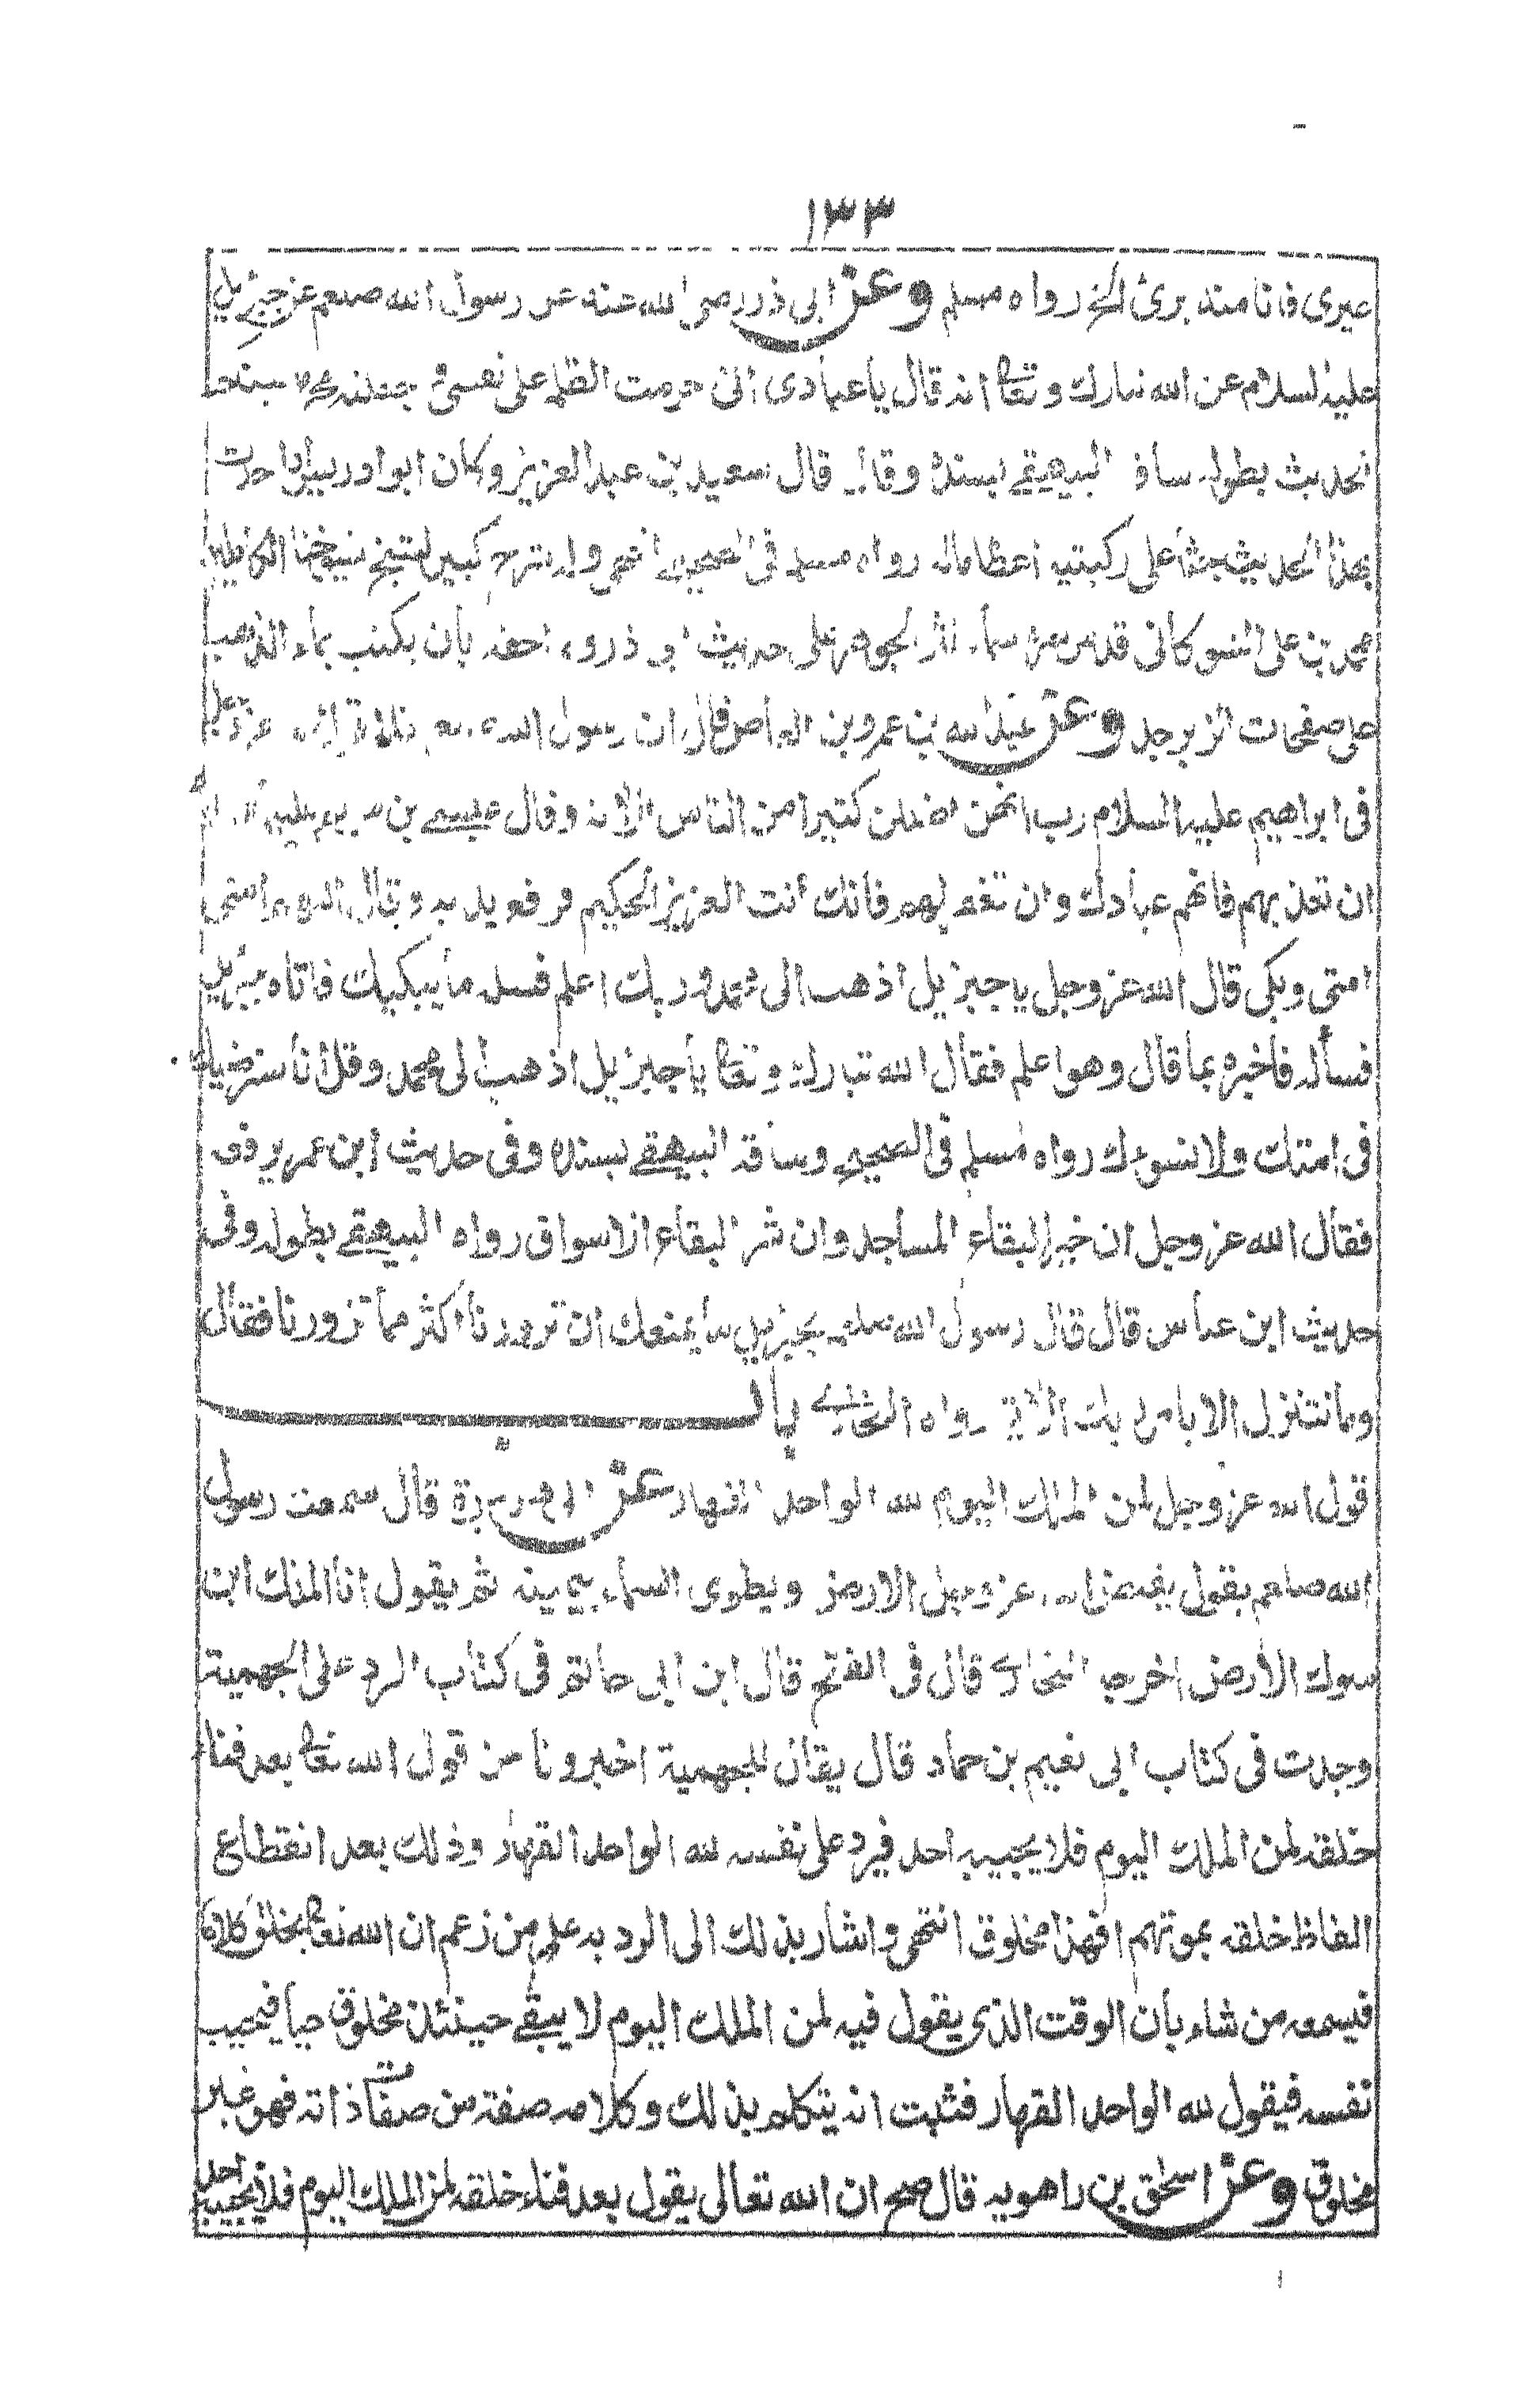 ١٣٣
غيرى فانا منه برئ الخ رواه مسلم وعن ابى ذر رضى الله عنه عن رسول الله صلعم عن جبرئيل
عليه السلام عن الله تبارك وتعا انه قال يا عبادى انى حرمت الظلم على نفسى
الحديث بطوله ساقه البيهقے بسنده وقال قال سعيد بن عبد العزيز وكان ابو ادريس اذا حدث
بهذا الحديث جثا على ركبتيه اعظاما له رواه مسلم فى الصحيح انتهى كبير لشيخ شيخنا
محمد بن على الشوكانى قدس سره سماه نثر الجوهر على حديث ابى ذر بان يكتب بماء الذهب
على صفحات الزبرجد وعن عبد الله بن عمرو بن العاص قال ان رسول الله
فى ابراهيم عليه السلام رب انهن اضللن كثيرا من الناس الاية وقال عيسے بن مريم
ان تعذبهم فانهم عبادك وان تغفر لهم فانك انت العزيز الحكيم فرفع يديه وقال اللهم امتى
امتى وبكى قال الله عز وجل يا جبرئيل اذهب الى محمد وربك اعلم فسله ما يبكيك فاتاه جبرئيل
فساله فاخبره بما قال وهو اعلم فقال الله تبارك وتعا يا جبرئيل اذهب الى محمد وقل انا سنرضيك
فى امتك ولا نسوءك رواه مسلم فى الصحيح وساقه البيهقے بسنده وفى حديث ابن عمر يرفعه
فقال الله عز وجل ان خير البقاع المساجد وان شر البقاع الاسواق رواه البيهقے بطوله وفى
حديث ابن عباس قال قال رسول الله صلعم لجبرئيل ما يمنعك ان تزورنا اكثر مما تزورنا فقال
وما نتنزل الا بامر ربك الاية رواه البخارے باب
قول الله عز وجل لمن الملك اليوم لله الواحد القهار عن ابى هريرة قال سمعت رسول
الله صلعم يقول يقبض الله عز وجل الارض ويطوى السماء بيمينه ثم يقول انا الملك اين
ملوك الارض اخرجه البخارے قال فى الفتح قال ابن ابى حاتم فى كتاب الرد على الجهمية
وجدت فى كتاب ابى نعيم بن حماد قال يقال للجهمية اخبرونا عن قول الله تعا بعد فناء
خلقه لمن الملك اليوم فلا يجيبه احد فيرد على نفسه لله الواحد القهار وذلك بعد انقطاع
الفاظ خلقه بموتهم افهذا مخلوق انتهى واشار بذلك الى الرد به على من زعم ان الله تعا يخلق كلاما
فيسمعه من شاء بان الوقت الذى يقول فيه لمن الملك اليوم لا يبقے حينئذ مخلوق حيا فيجيب
نفسه فيقول لله الواحد القهار فثبت انه يتكلم بذلك وكلامه صفة من صفات ذاته فهو غير
مخلوق وعن اسحق بن راهويه قال صح ان الله تعالى يقول بعد فناء خلقه لمن الملك اليوم فلا يجيبه احد